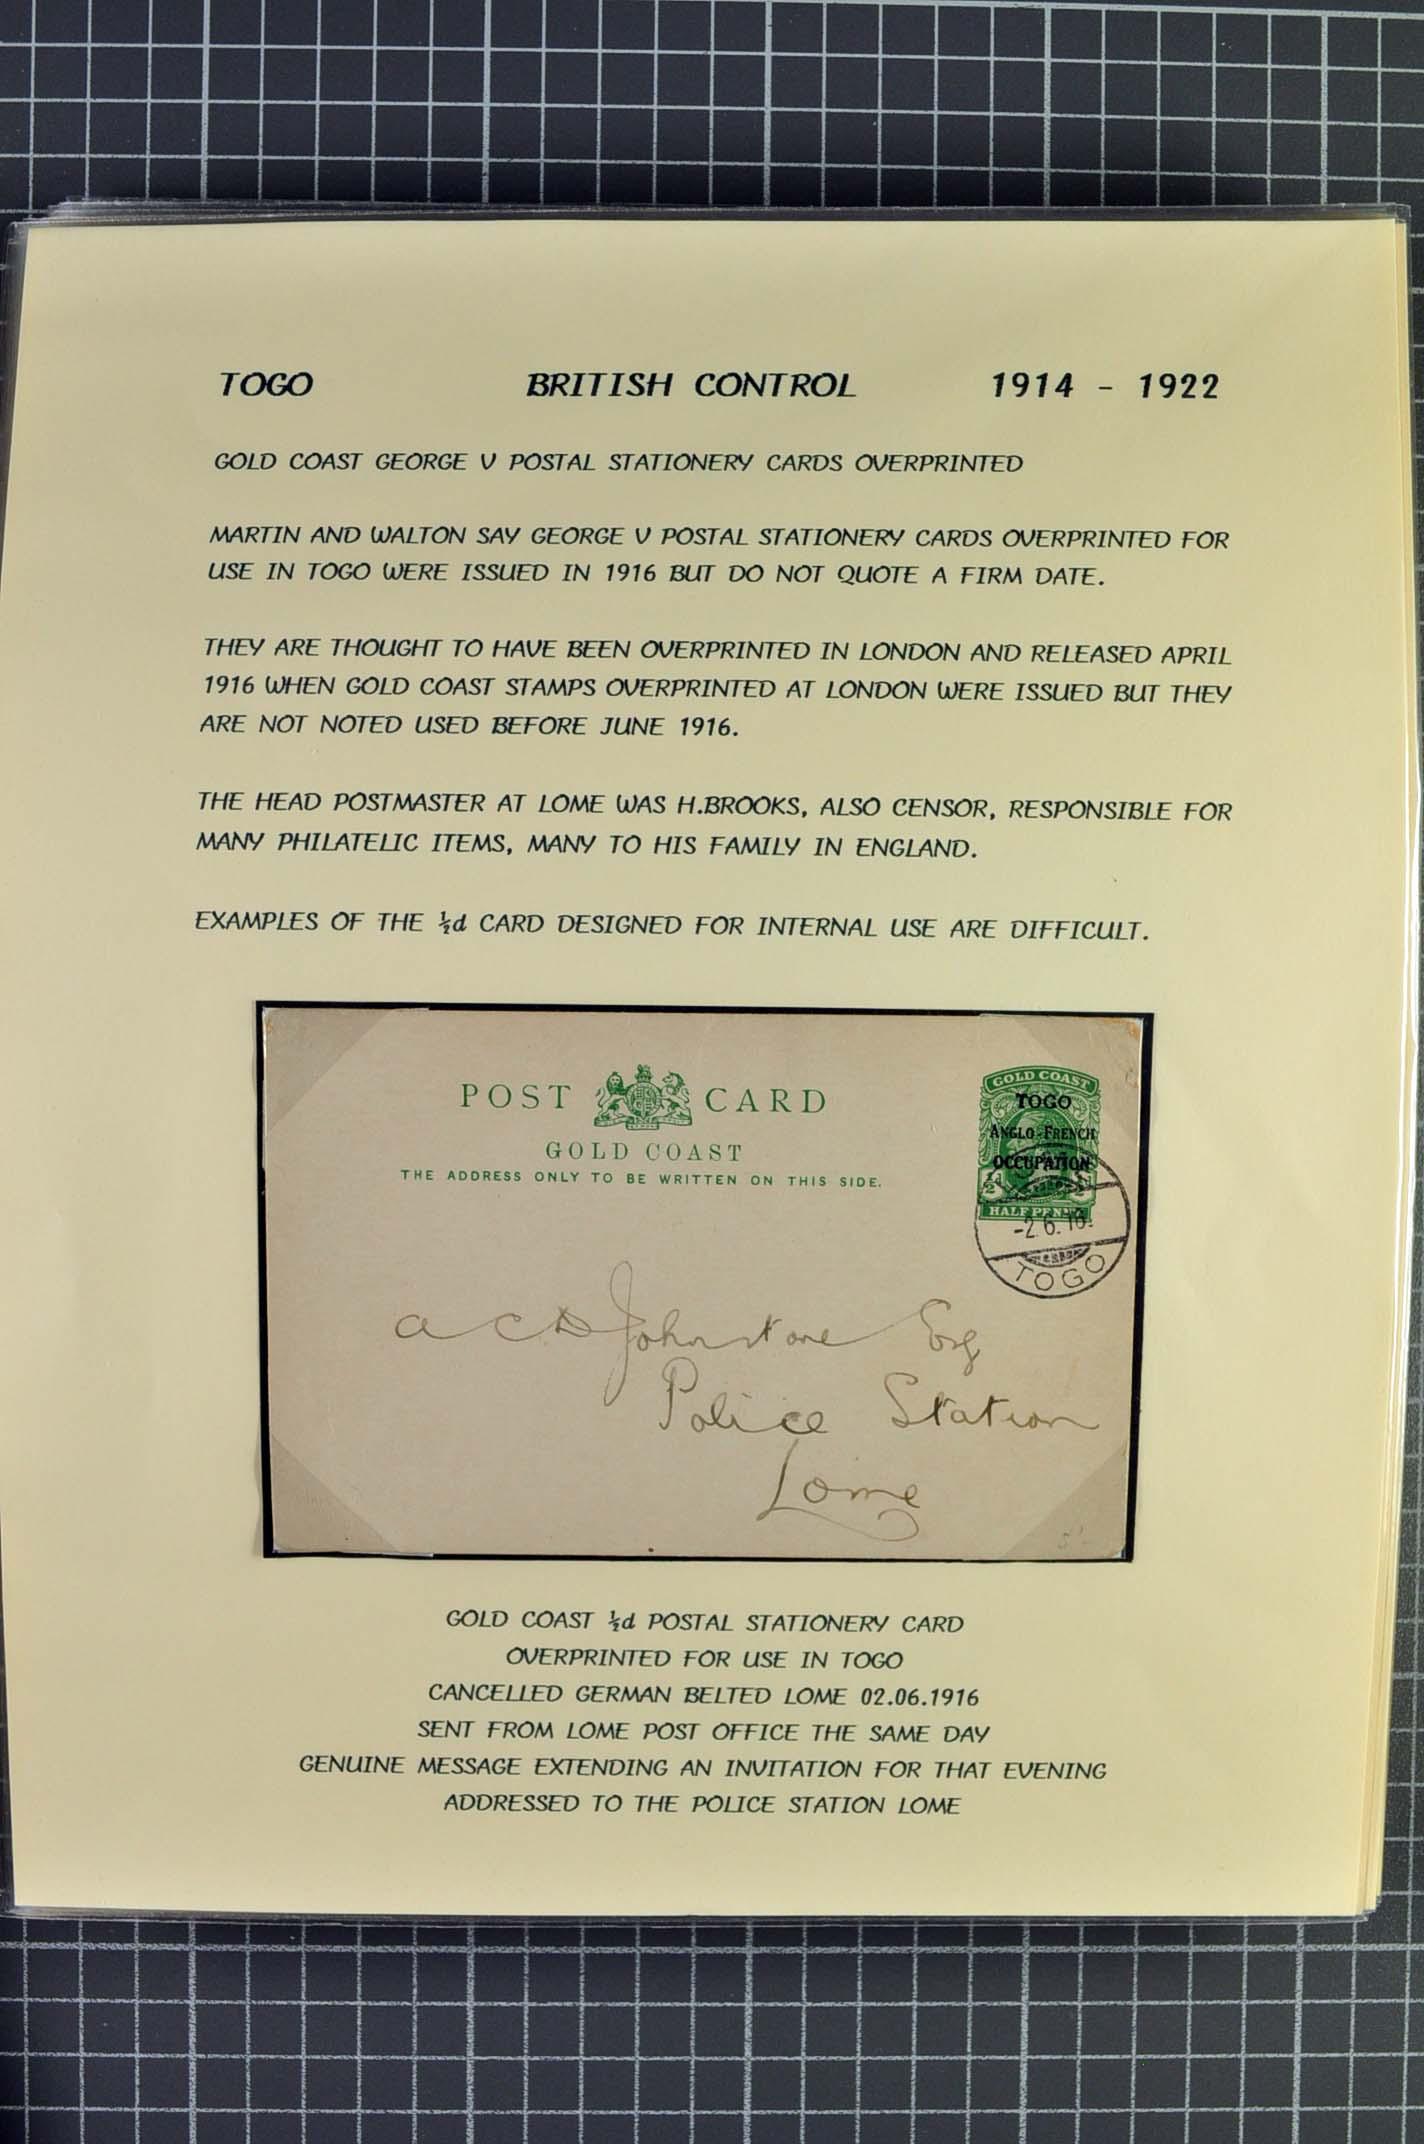 TOGO BRITISH CONTROL 1914 - 1922
GOLD COAST GEORGE V POSTAL STATIONERY CARDS OVERPRINTED
MARTIN AND WALTON SAY GEORGE V POSTAL STATIONERY CARDS OVERPRINTED FOR
USE IN TOGO WERE ISSUED IN 1916 BUT DO NOT QUOTE A FIRM DATE.
THEY ARE THOUGHT TO HAVE BEEN OVERPRINTED IN LONDON AND RELEASED APRIL
1916 WHEN GOLD COAST STAMPS OVERPRINTED AT LONDON WERE ISSUED BUT THEY
ARE NOT NOTED USED BEFORE JUNE 1916.
THE HEAD POSTMASTER AT LOME WAS H.BROOKS, ALSO CENSOR, RESPONSIBLE FOR
MANY PHILATELIC ITEMS, MANY TO HIS FAMILY IN ENGLAND.
EXAMPLES OF THE ½d CARD DESIGNED FOR INTERNAL USE ARE DIFFICULT.
POST CARD
GOLD COAST
THE ADDRESS ONLY TO BE WRITTEN ON THIS SIDE.
GOLD COAST
TOGO
ANGLO-FRENCH
OCCUPATION
HALFPENNY
-2.6.16.
TOGO
A C D Johnstone Esq
Police Station
Lome
GOLD COAST ½d POSTAL STATIONERY CARD
OVERPRINTED FOR USE IN TOGO
CANCELLED GERMAN BELTED LOME 02.06.1916
SENT FROM LOME POST OFFICE THE SAME DAY
GENUINE MESSAGE EXTENDING AN INVITATION FOR THAT EVENING
ADDRESSED TO THE POLICE STATION LOME